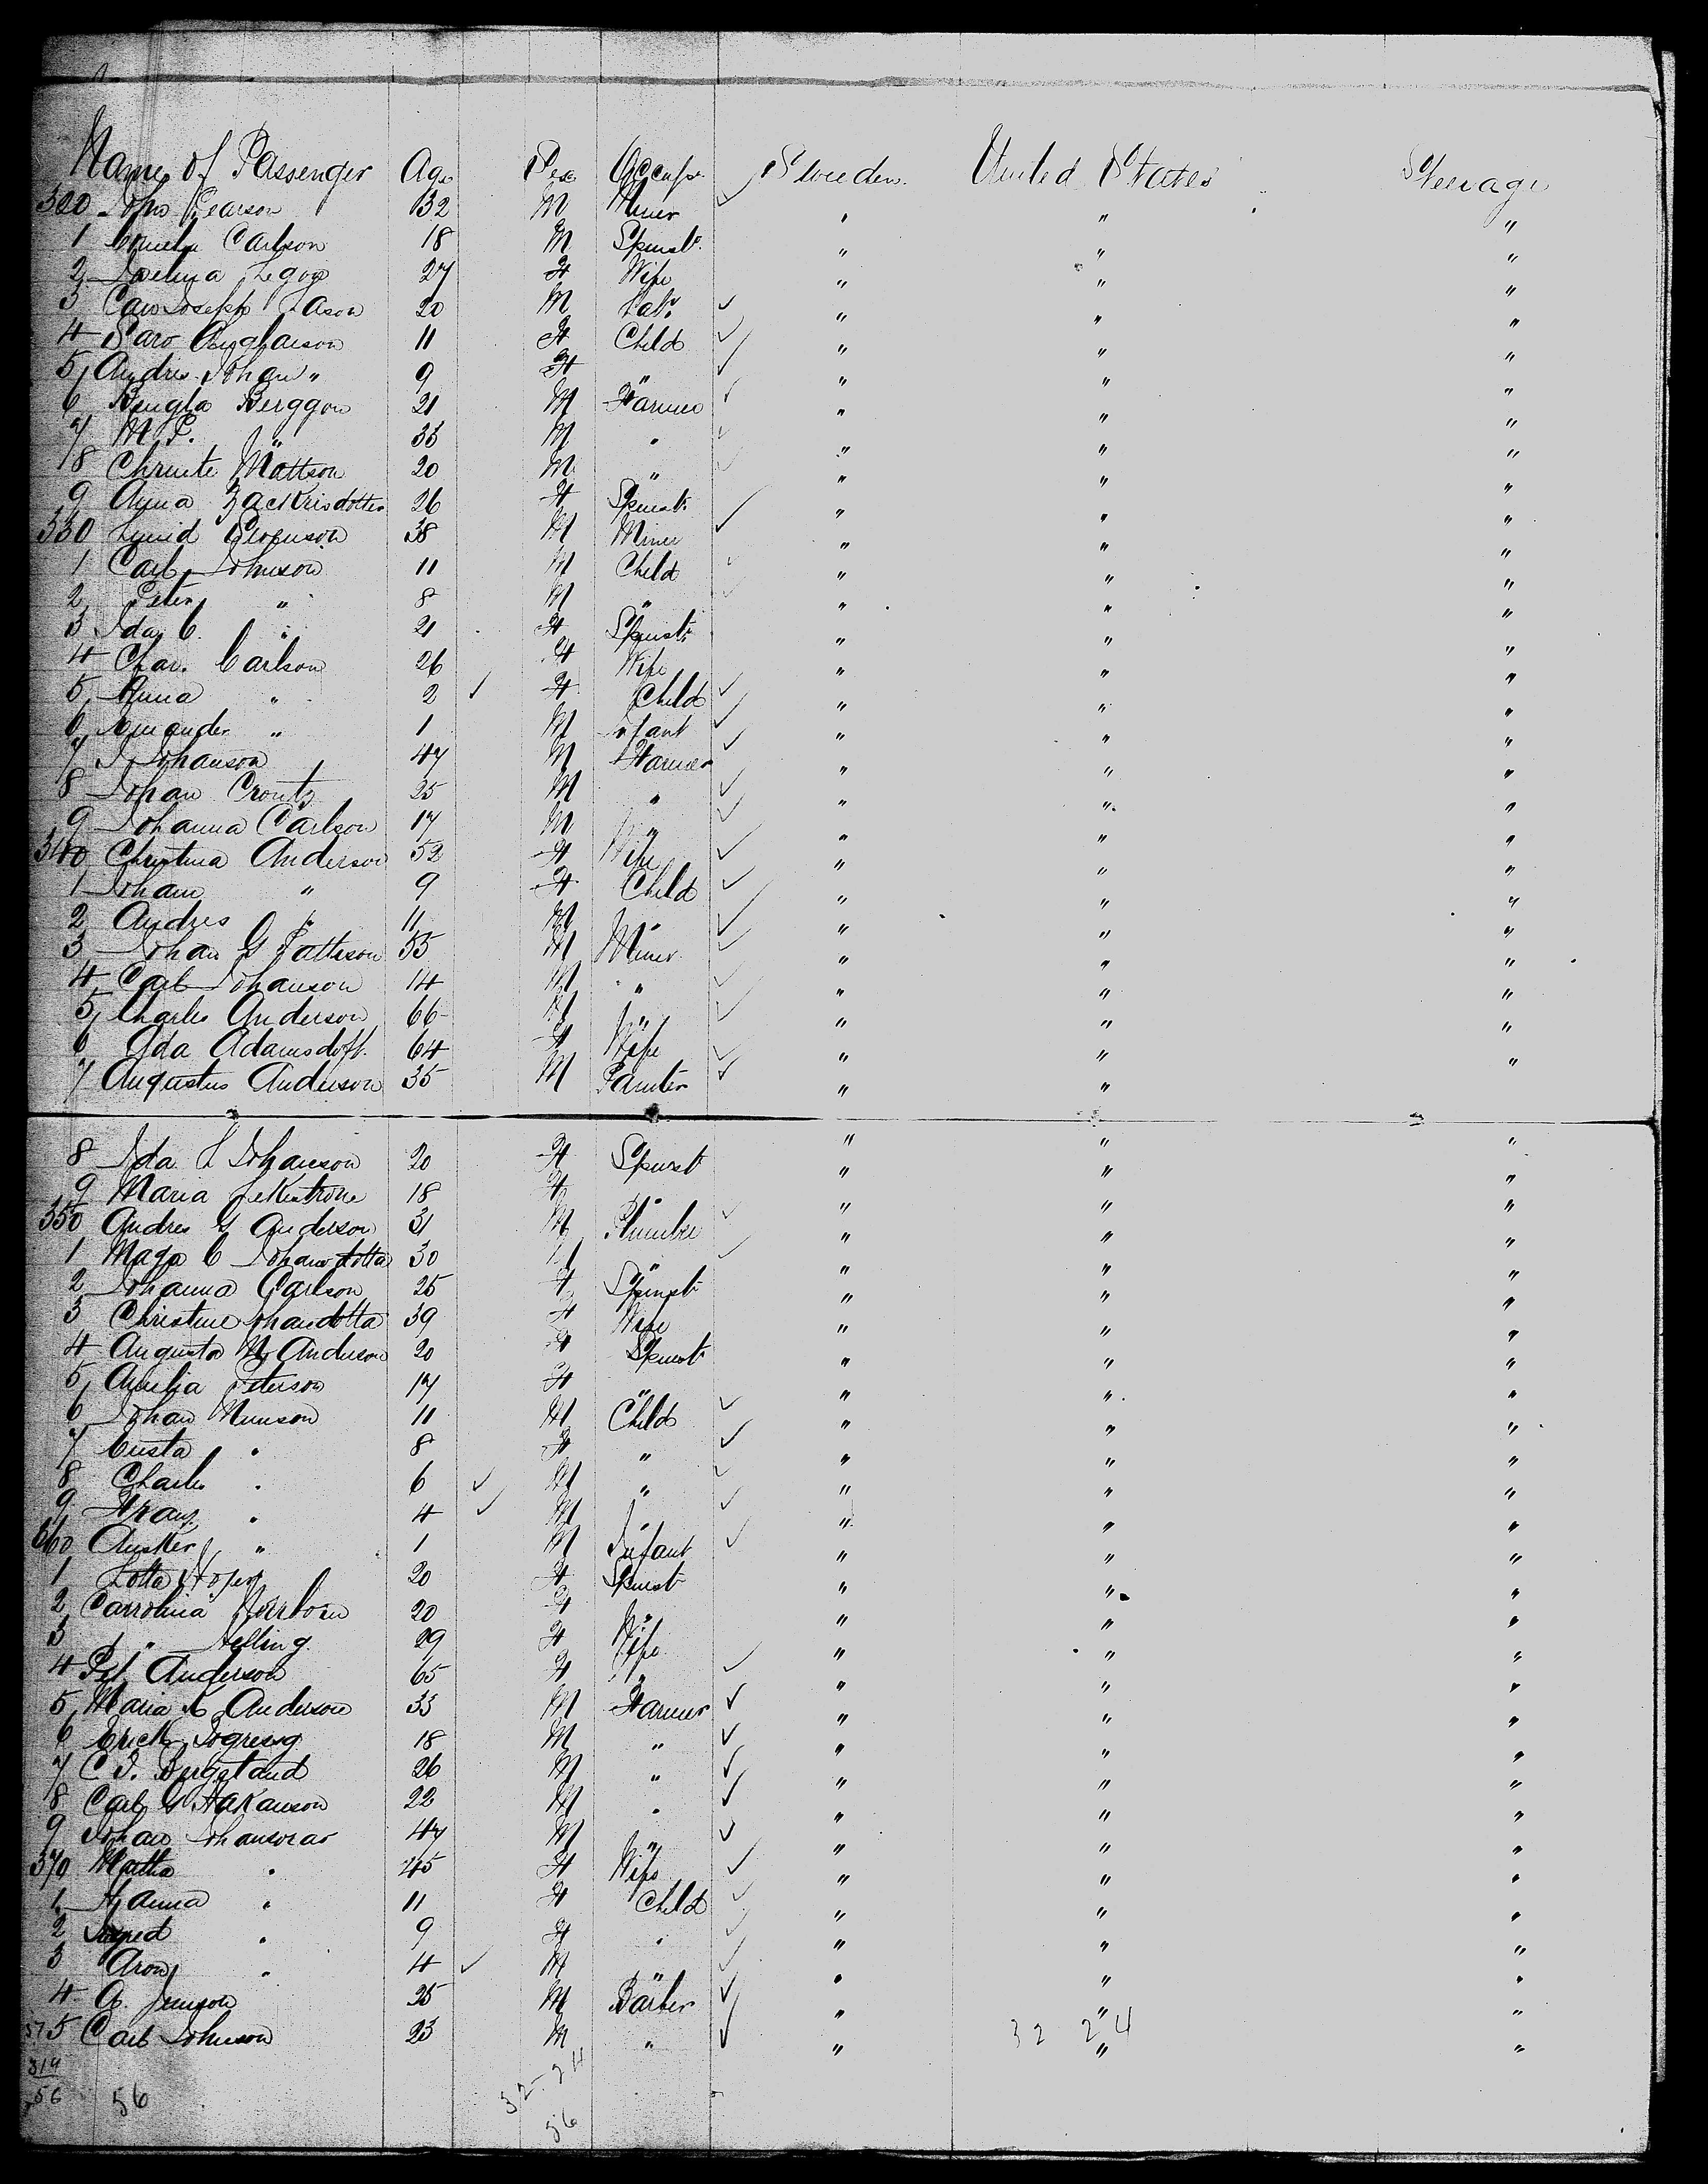 Name of Passenger Age Sex Occup. Sweden. United States Steerage
320 John Pearson 32 M Miner " " "
1 Carlson 18 M Spinst. " " "
2 27 F Wife " " "
3 Joseph 20 M Lab. " " "
4 11 F Child " " "
5 Andres Johan " 9 F " " " "
6 Bengta Berggon 21 M Farmer " " "
7 M. P. " 33 M " " " "
8 Mattson 20 M " " " "
9 Anna Zackrisdotter 26 F Spinst. " " "
330 38 M Miner " " "
1 Carl Johnson 11 M Child " " "
2 Peter " 8 M " " " "
3 Ida C. " 21 F Spinst. " " "
4 Char. Carlson 26 F Wife " " "
5 Anna " 2 F Child " " "
6 " 1 M Infant " " "
7 J Johanson 47 M Farmer " " "
8 Johan Croutz 25 M " " " "
9 Johanna Carlson 17 M " " " "
340 Christina Anderson 52 F Wife " " "
1 Johan " 9 F Child " " "
2 Andres " 11 M " " " "
3 Johan G Patterson 55 M Miner " " "
4 Carl Johanson 14 M " " " "
5 Charles Anderson 66 M " " " "
6 Ada Adamsdott. 64 F Wife " " "
7 Augustus Anderson 35 M Painter " " "
8 Ida L Johanson 20 F Spinst " " "
9 Maria 18 F " " " "
350 Andres G Anderson 31 M Plumber " " "
1 Maga C Johansdotta 30 M " " " "
2 Johanna Carlson 25 F Spinst " " "
3 Christine Johandotta 39 F Wife " " "
4 Augusta N Anderson 20 F Spinst " " "
5 Amelia Peterson 17 F " " " "
6 Johan Munson 11 M Child " " "
7 Custa " 8 F " " " "
8 Charles " 6 M " " " "
9 Franz " 4 M " " " "
360 Ausker " 1 M Infant " " "
1 Lotta 20 F Spinst " " "
2 Carrolina 20 F " " " "
3 " Helling 29 F Wife " " "
4 Pet Anderson 65 F " " " "
5 Maria K Anderson 33 M Farmer " " "
6 Erick 18 M " " " "
7 C J. 26 M " " " "
8 Carl G Hakanson 22 M " " " "
9 Johan 47 M " " " "
370 Matha " 45 F Wife " " "
1 Hanna " 11 F Child " " "
2 " 9 F " " " "
3 Aron " 4 M " " " "
4 A. Jenson 25 M Barber " " "
375 Carl Johnson 23 M " " " "
32 24
319
56 56
32-24
56